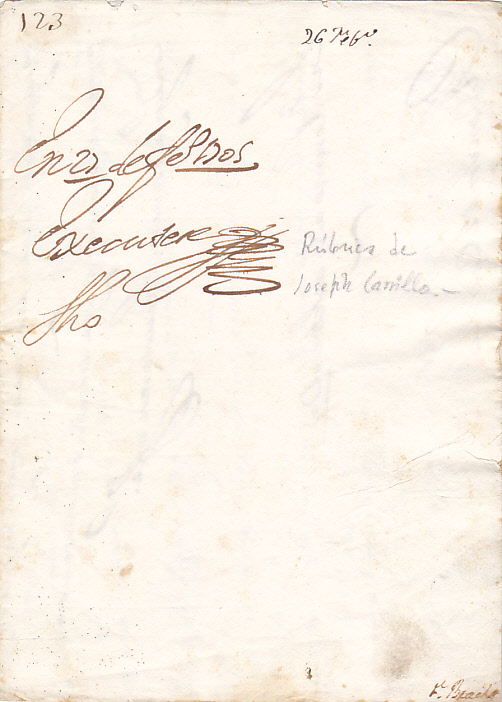 123
26 Febº.
En 21 de febº Dos
Executese
fho
Rúbrica de
Joseph Carrillo.-